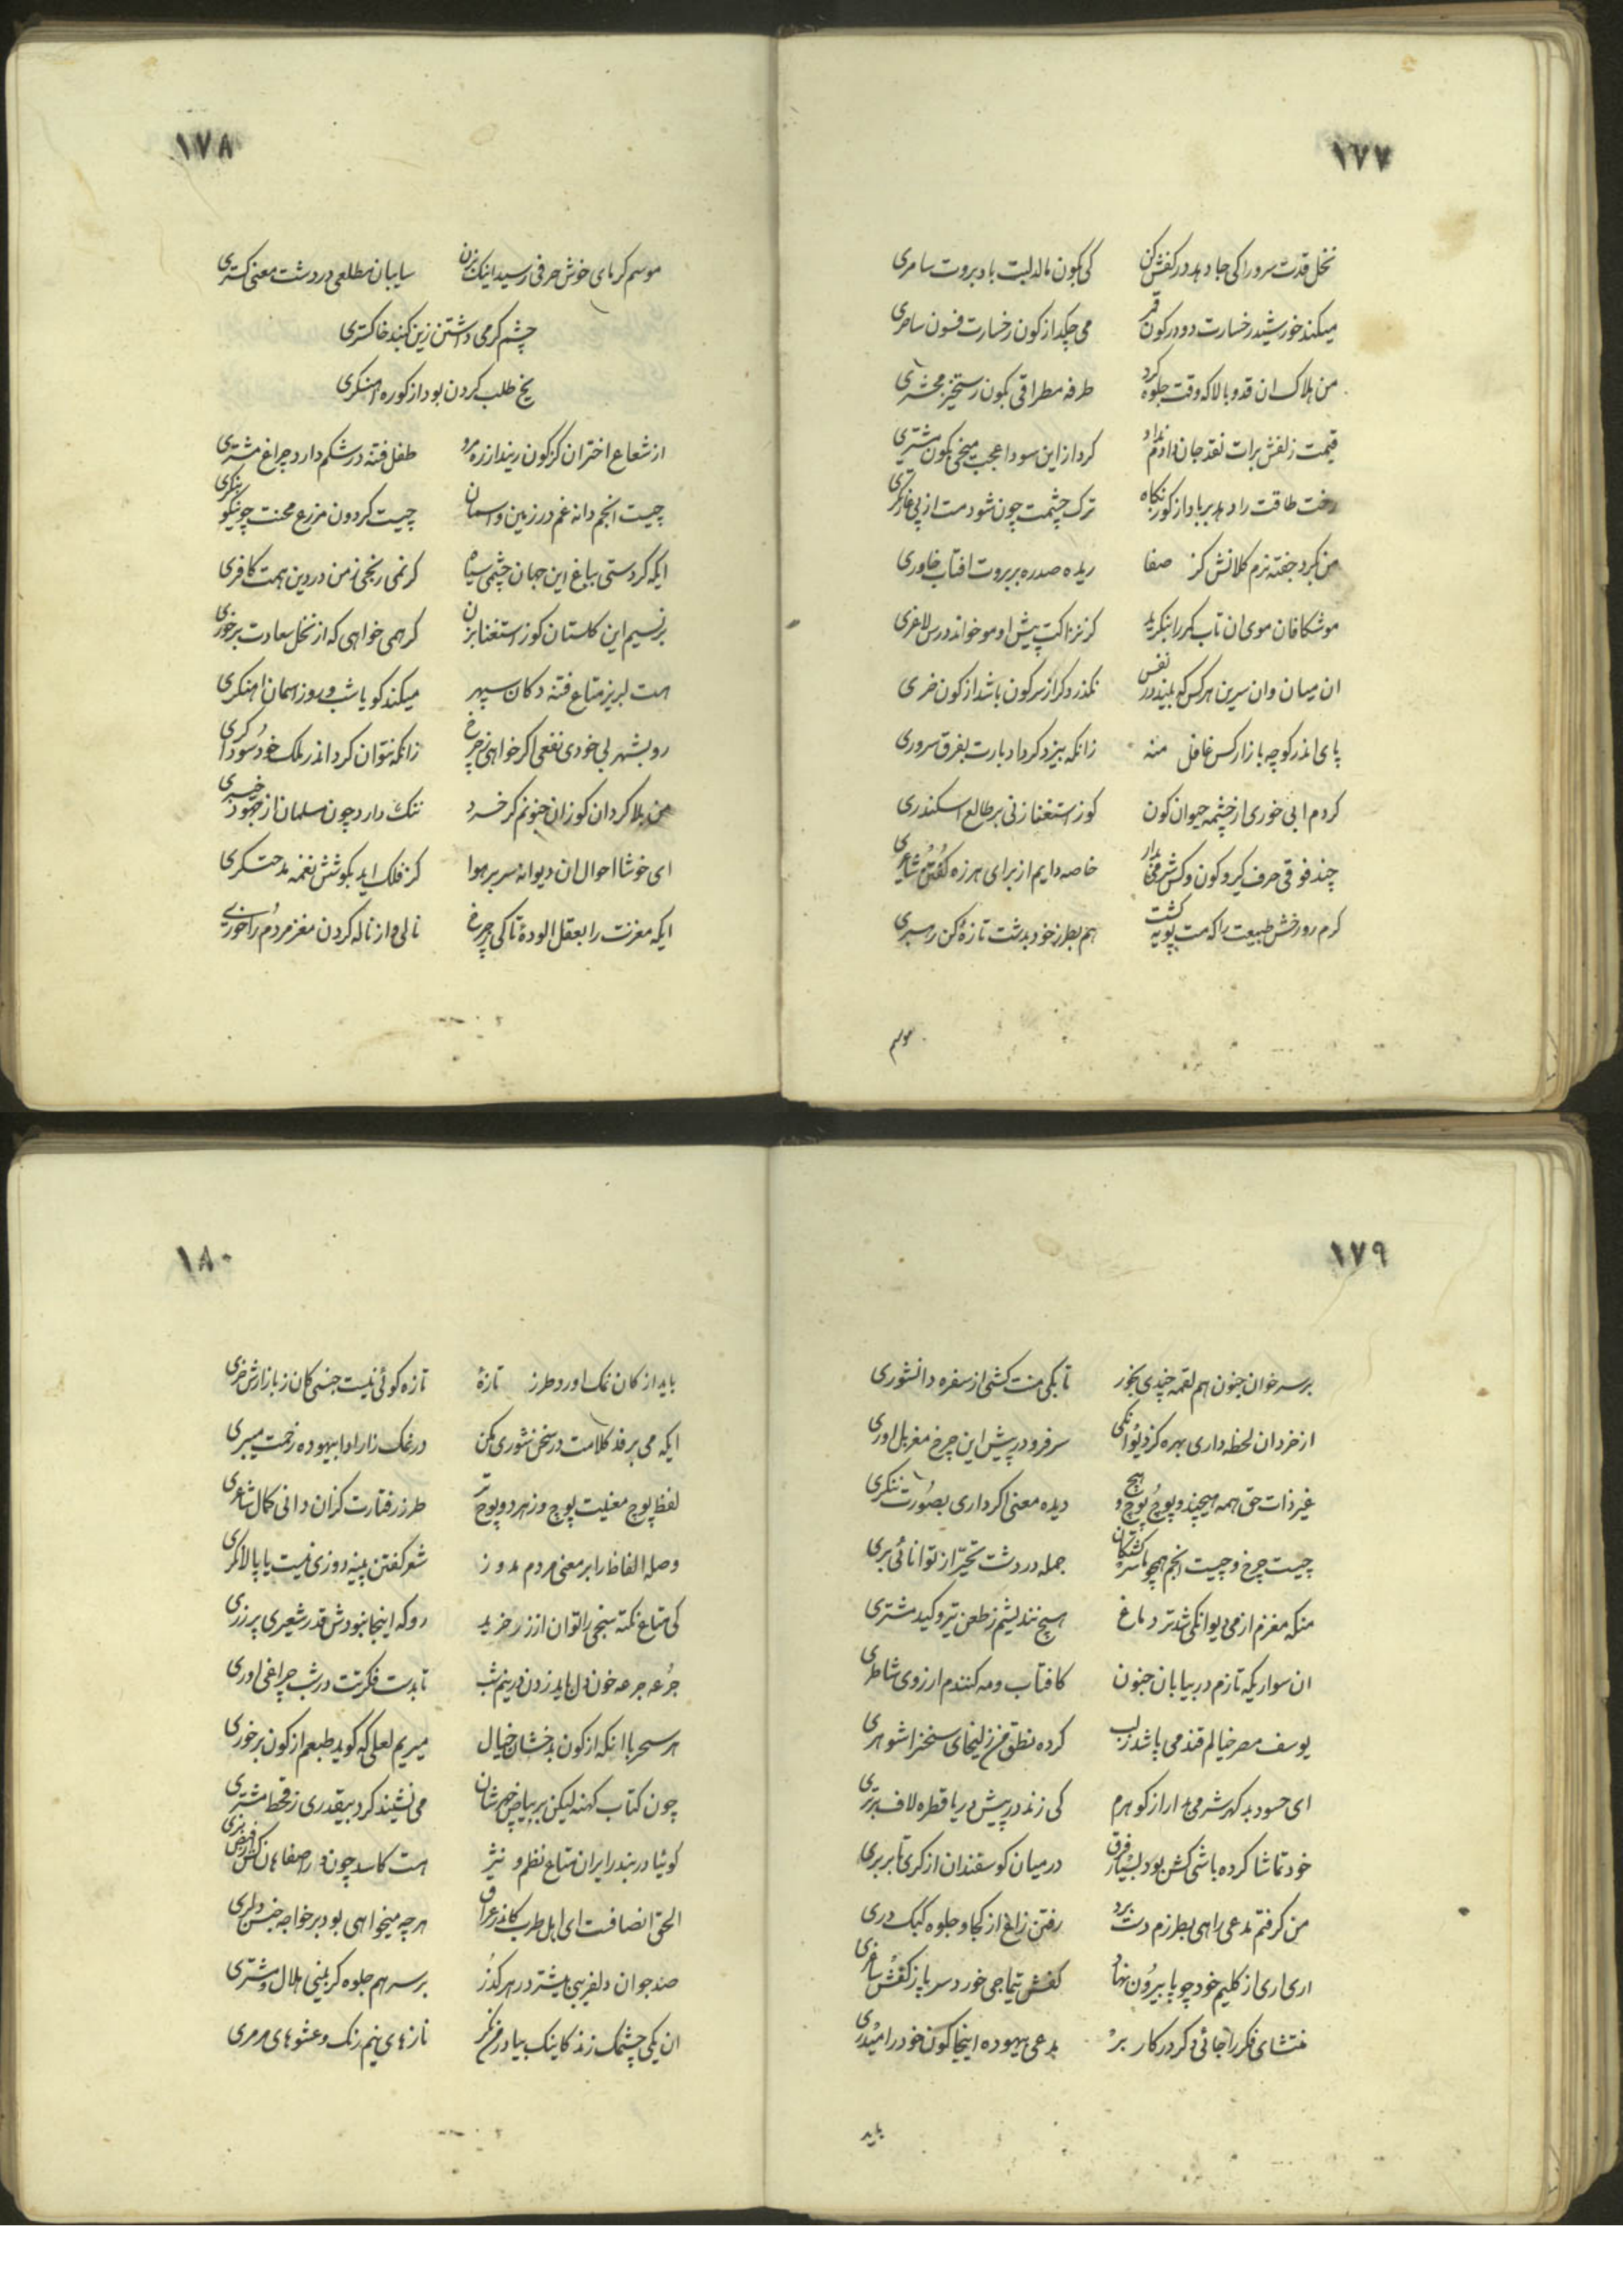 ١٧٧
نخل قدت سرو را کی جا دهد در کفش کن
کی بکون مالد لبت باد بروت سامری
میکند خورشید رخسارت دو در کون قمر
می چکد از کون رخسارت فسون ساحری
من هلاک ان قد و بالا که وقت جلوه کرد
طرفه مطراقی بکون رستخیز محشری
قیمت زلفش برات نقد جان دادم نداد
کرد از این سودا عجب میخی بکون مشتری
رخت طاقت را دهد بر باد از کوز نکاه
ترک چشمت چون شود مست از پی غارتکری
من بکرد جفته نرم کلانش کز صفا
ریده صد ره بر بروت افتاب خاوری
موشکافان موی ان تاب کمر را بنکرید
کز نزاکت پیش او مو خواند درس لاغری
ان میان وان سرین هر کس که بیند در نفس
نکذرد کر از سر کون باشد از کون خری
پای اندر کوچه بازار کس غافل منه
زانکه بیزد کرد ادبارت بفرق سروری
کردم ابی خوری از چشمه حیوان کون
کوز استغنا زنی بر طالع اسکندری
چند فوقی حرف کیر و کون و کس شرمی بدار
خاصه دایم از برای هرزه کفتن شاعری
کرم رو رخش طبیعت را که مست پویه کشت
هم بطرز خود بدشت تازهٔ کن رهبری
موسم
١٧٨
موسم کرمای خوش حرفی رسید اینک بزن
سایبان مطلعی در دشت معنی کستری
چشم کرمی داشتن زین کنبد خاکستری
یخ طلب کردن بود از کوره اهنکری
از شعاع اختران کز کون ریندازره مرو
طفل فتنه در شکم دارد چراغ مشتری
چیست انجم دانه غم در زمین واسمان
چیست کردون مزرع محنت چو نیکو بنکری
ایکه کردستی بباغ این جهان چشمی سیاه
کر نمی رنجی ز من در دین همت کافری
بر نسیم این کلستان کوز استغنا بزن
کر همی خواهی که از نخل سعادت برخوری
هست لبریز متاع فتنه دکان سپهر
میکند کو یا شب و روز اسمان اهنکری
رو بشهر بی خودی نفعی اکر خواهی ز چرخ
زانکه نتوان کرد اندر ملک خود سوداکری
من بلا کردان کوز ان جنونم کز خرد
ننک دارد چون مسلمان از جهود خیبری
ای خوشا احوال ان دیوانه سر بر هوا
کز فلک اید بکوشش نغمه مدحتکری
ایکه مغزت را بعقل الودهٔ تا کی ز چرخ
نالی و از ناله کردن مغز مردم را خوری
١٧٩
بر سر خوان جنون هم لقمه چندی بخور
تا بکی منت کشی از سفره دانشوری
از خرد ان لحظه داری بهره کز دیوانکی
سر فرو در پیش این چرخ مغربل اوری
غیر ذات حق همه هیچند و پوچ پوچ و هیچ
دیده معنی اکر داری بصورت ننکری
چیست چرخ و چیست انجم همچو ما سرکشتکان
جمله در دشت تحیر از توانائی بری
منکه مغزم از می دیوانکی شد تر دماغ
هیچ نندیشم ز طعن تیر و کید مشتری
ان سوار یکه تازم در بیابان جنون
کافتاب و مه کنندم ارزوی شاطری
یوسف مصر خیالم قند می پاشد ز لب
کرده نطق من زلیخای سخن را شوهری
ای حسود بد کهر شرمی بدار از کوهرم
کی زند در پیش دریا قطره لاف برتری
خود تماشا کرده باشی کش بود بسیار فرق
در میان کوسفندان از کری تا بربری
من کرفتم مدعی راهی بطرزم دست برد
رفتن زاغ از کجا و جلوه کبک دری
اری اری از کلیم خود چو پا بیرون نهاد
کفش تیماجی خورد سر باز کفش ساغری
منتشای فکر را جائی دکر در کار بر
مدعی بیهوده اینجا کون خود را میدری
باید
١٨٠
باید از کان نمک اورد طرز تازهٔ
تازه کوئی نیست جنسی کان ز بازارش خری
ایکه می بر قد کلامت در سخن شوری مکن
در نمک زار ادا بیهوده زحمت میبری
لفظ پوچ معنیت پوچ و ز هر دو پوچ تر
طرز رفتارت کزان دانی کمال شاعری
وصله الفاظ را بر معنی مردم مدوز
شعر کفتن پینه دوزی نیست یا پالانکری
کی متاع نکته سنجی را توان از زر خرید
رو که اینجا نبودش قدر شعیری پر زری
جرعه جرعه خون دل باید زدن در نیم شب
تا بدست فکرتت در شب چراغی اوری
هر سحر با انکه از کون بدخشان خیال
میریم لعلی که کوید طبعم از کون برخوری
چون کتاب کهنه لیکن بر بیاض چهرشان
می نشیند کرد بیقدری ز قحط مشتری
کوئیا در بندر ایران متاع نظم و نثر
هست کاسد چون در اصفاهان
الحق انصافست ای اهل طرب کاندر عراق
هر چه میخواهی بود بر خواجه جنس دلبری
صد جوان دلفریبی بیشتر در هر کذر
بر سر هم جلوه کر بینی هلال و مشتری
ان یکی چشمک زند کاینک بیا در من نکر
ناز های نیم رنک و عشوهای مرمری